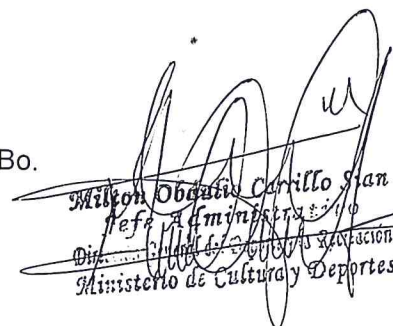 Bo.
Milton Obdulio Carrillo Sian
Jefe Administrativo
General del Deporte y la Recreación
Ministerio de Cultura y Deportes